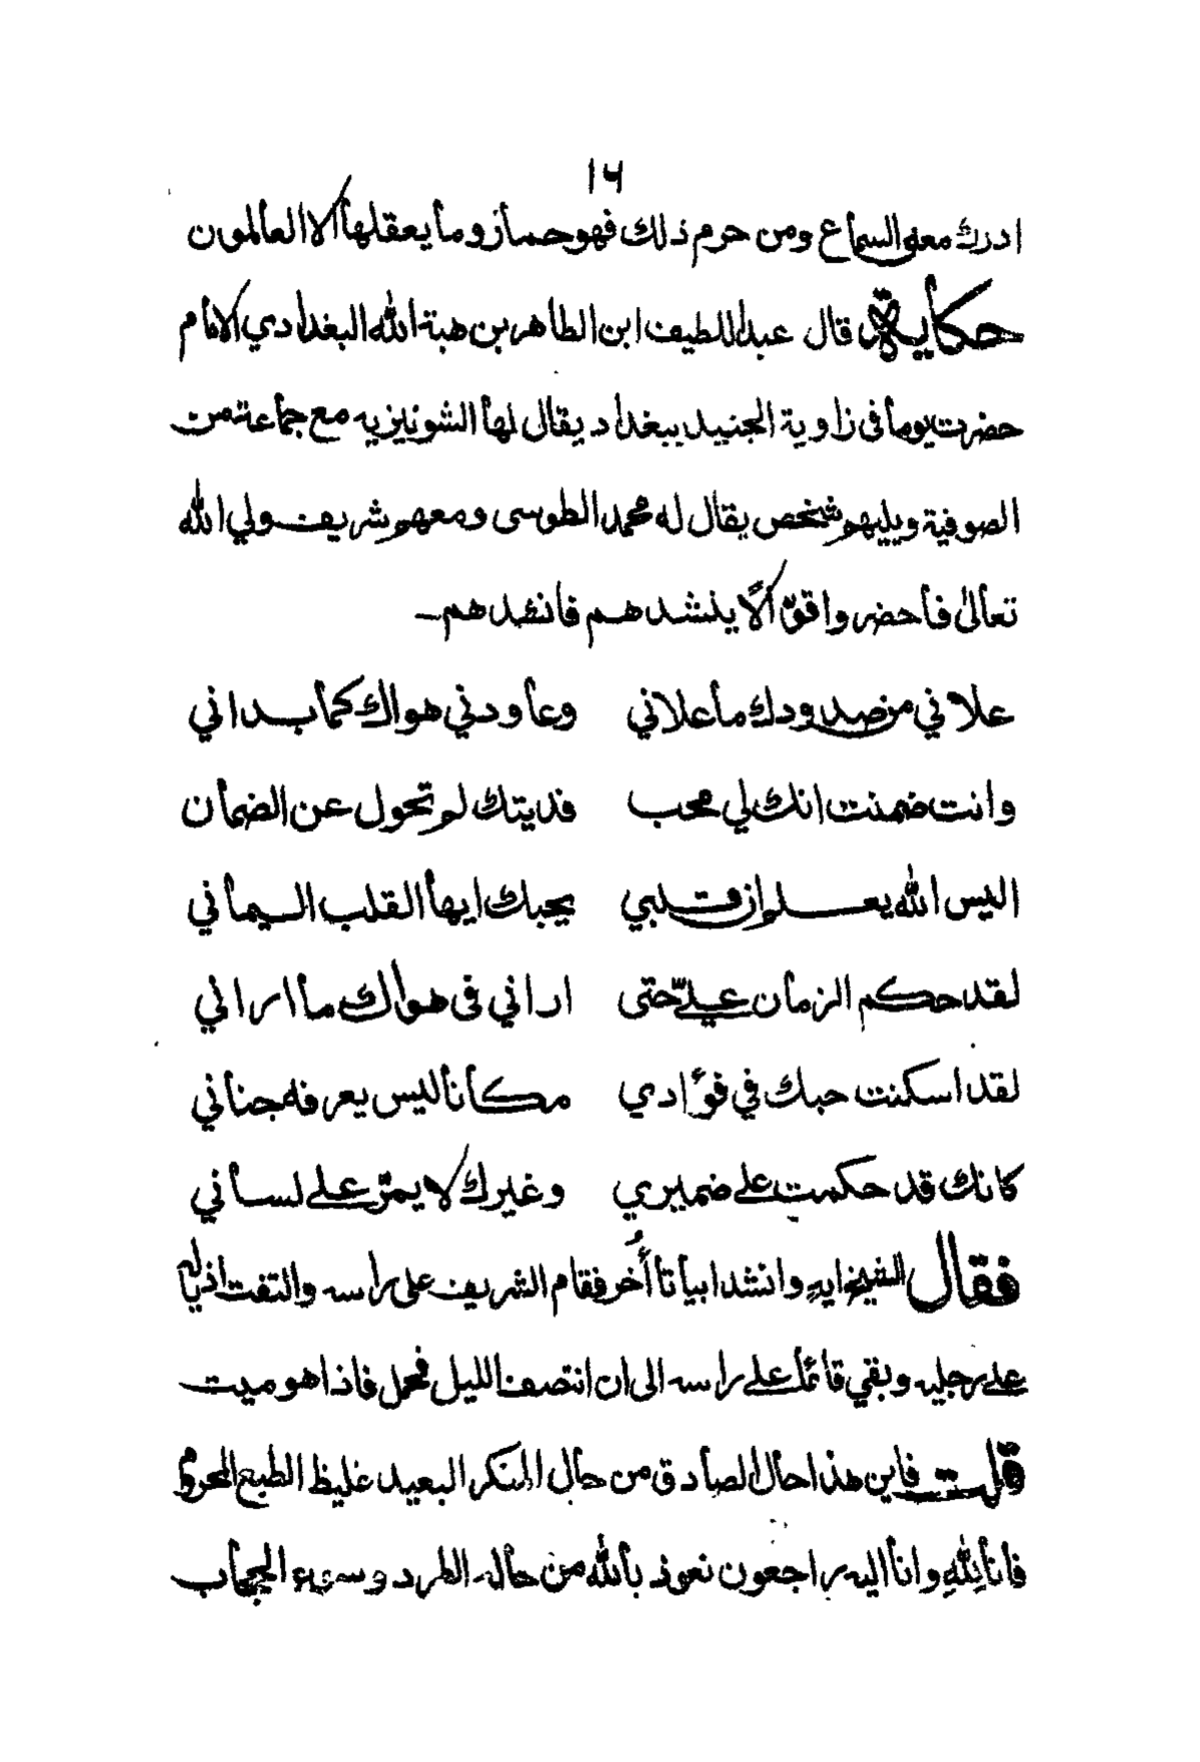 ١٦
ادرك معنى السماع ومن حرم ذلك فهو حماز وما يعقلها الا العالمون
حكاية قال عبد اللطيف ابن الطاهر بن هبة الله البغدادي الامام
حضرت يوما فى زاوية الجنيد ببغداد يقال لها الشونيزيه مع جماعة من
الصوفية ويليهم شخص يقال له محمد الطوسى ومعهم شريف ولي الله
تعالى فاحضر واقوّالًا ينشدهم فانشدهم
علاني من صدودك ما علاني وعاودني هواك كما بداني
وانت ضمنت انك لي محب فديتك لم تحول عن الضمان
اليس الله يعلم ان قلبي يحبك ايها القلب اليماني
لقد حكم الزمان عليّ حتى اراني فى هواك ما اراني
لقد اسكنت حبك في فؤادي مكانا ليس يعرفه جناني
كانك قد حكمت على ضميري وغيرك لا يمرّ على لساني
فقال الشيخ ايهٍ وانشد ابياتا أُخر فقام الشريف على راسه والتفت اذياله
على رجليه وبقي قائما على راسه الى ان انتصف الليل فحمل فاذا هو ميت
قلت فاين هذا حال الصادق من حال المنكر البعيد غليظ الطبع المحروم
فانا لِلّٰهِ وانا اليه راجعون نعوذ بالله من حال الطرد وسوء الحجاب